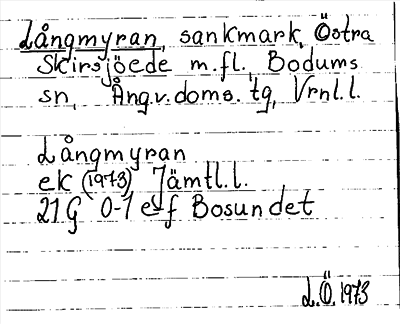 Långmyran, sankmark, Östra
Skirsjöede m.fl., Bodums
sn, Ång.v.doms. tg, Vrnl.l.
Långmyran
ek (1973) Jämtl.l.
21G 0-1 e-f Bosundet
L.Ö. 1973